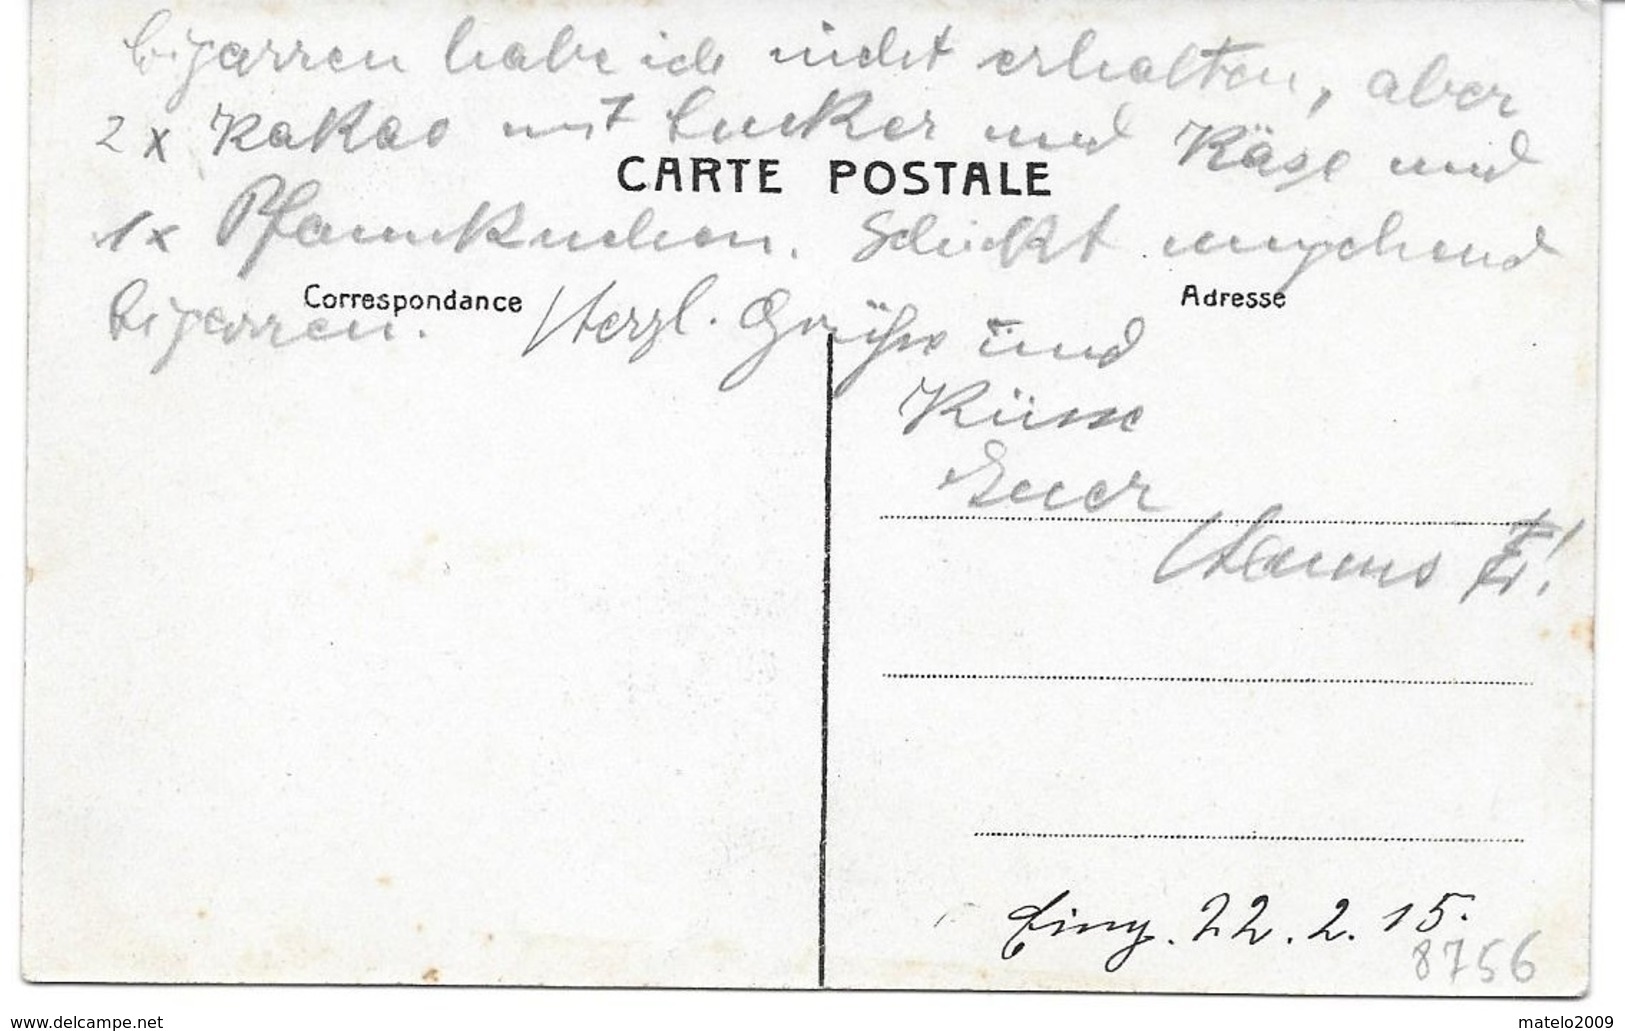 Cigarren habe ich nicht erhalten, aber
2 x Kakao mit Zucker und Käse und
CARTE POSTALE
1 x Pfannkuchen. Schickt umgehend
Correspondance
Adresse
Cigarren. Herzl. Grüße und
Küsse
Euer
Hanns
Eing. 22.2.15.
8756
www.delcampe.net
matelo2009